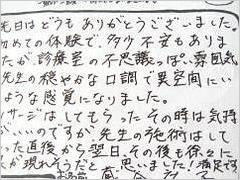 先日はどうもありがとうございました。
初めての体験で、多少不安もありま
たが、診療室の不思議っぽい雰囲気
先生の穏やかな口調で異空間にい
ような感覚になりました。
サージはしてもらったその時は気持
がいいのですが、先生の施術はして
った直後から翌日、その後も徐々に
が現れそうだと思いました!満足です